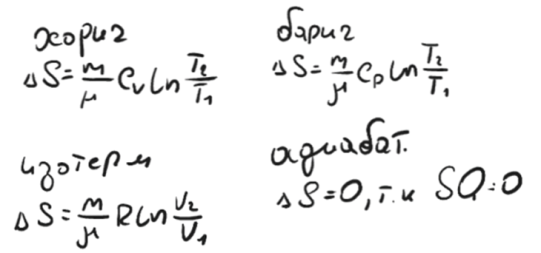 хориг
ΔS = m/μ Cv ln T2/T1
бариг
ΔS = m/μ Cp ln T2/T1
изотерм
ΔS = m/μ R ln V2/V1
адиабат.
ΔS = 0, т.к δQ = 0